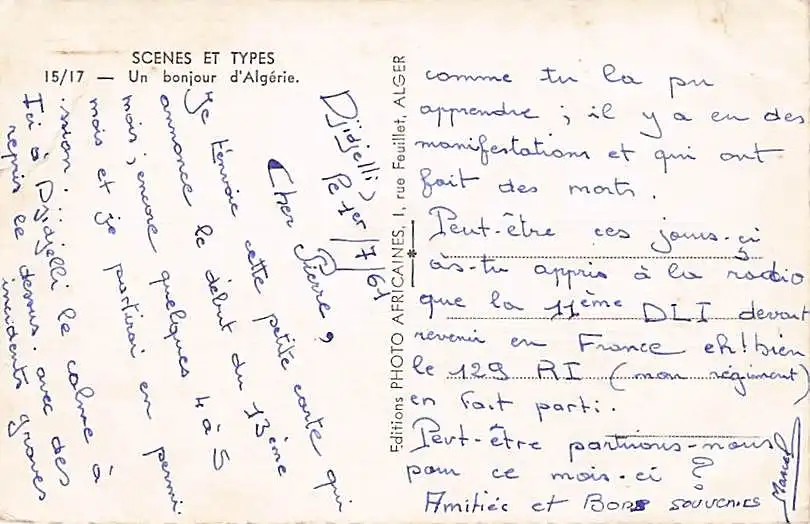 SCENES ET TYPES
15/17 — Un bonjour d'Algérie.
Djidjelli,
Le 1er/7/61
Cher Pierre,
Je t'envoie cette petite carte qui
annonce le début du 13ème
mois ; encore quelques 4 à 5
mois et je partirai en permi.
ssion...
Ici à Djidjelli le calme à
repris le dessus. avec des
incidents graves
Editions PHOTO AFRICAINES, 1, rue Feuillet, ALGER
comme tu la pu
apprendre ; il y a eu des
manifestations et qui ont
fait des morts.
Peut-être ces jours-ci
as-tu appris à la radio
que la 11ème DLI devait
revenir en France eh! bien
le 129 RI (mon régiment)
en fait parti.
Peut-être partirons-nous
pour ce mois-ci ?
Amitiéc et Bons souvenirs
Marcel